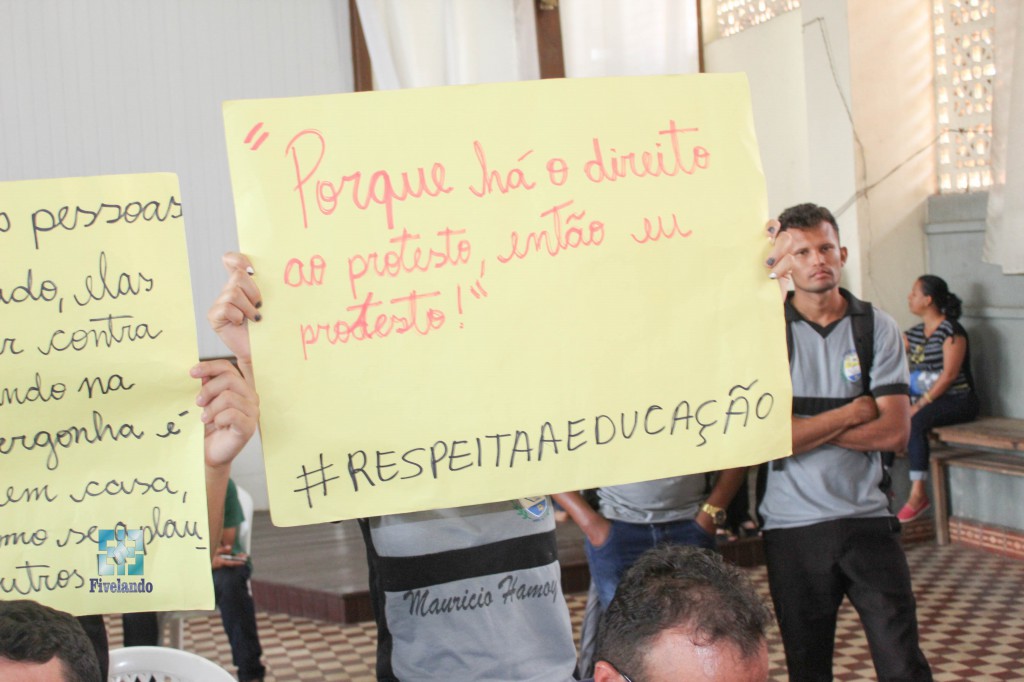 "Porque há o direito
ao protesto, então eu
protesto!"
#RESPEITAAEDUCAÇÃO
pessoas
ado, elas
r contra
ndo na
ergonha é
em casa,
mo se o plau
utros
Fivelando
Mauricio Hamoy